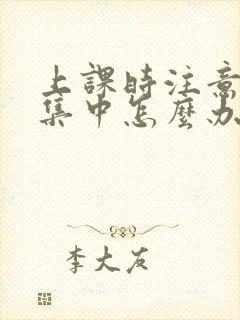 上課時注意
集中怎麼办
李大友